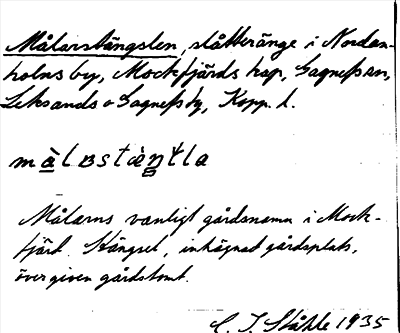 Målarstängslen, slåtteränge i Nordan-
holns by, Mockfjärds kap, Gagnefs sn,
Leksands o Gagnefs tg, Kopp. l.
Målarns vanligt gårdsnamn i Mock-
fjärd. Stängsel, inhägnad gårdsplats,
övergiven gårdstomt.
C. I. Ståhle 1935